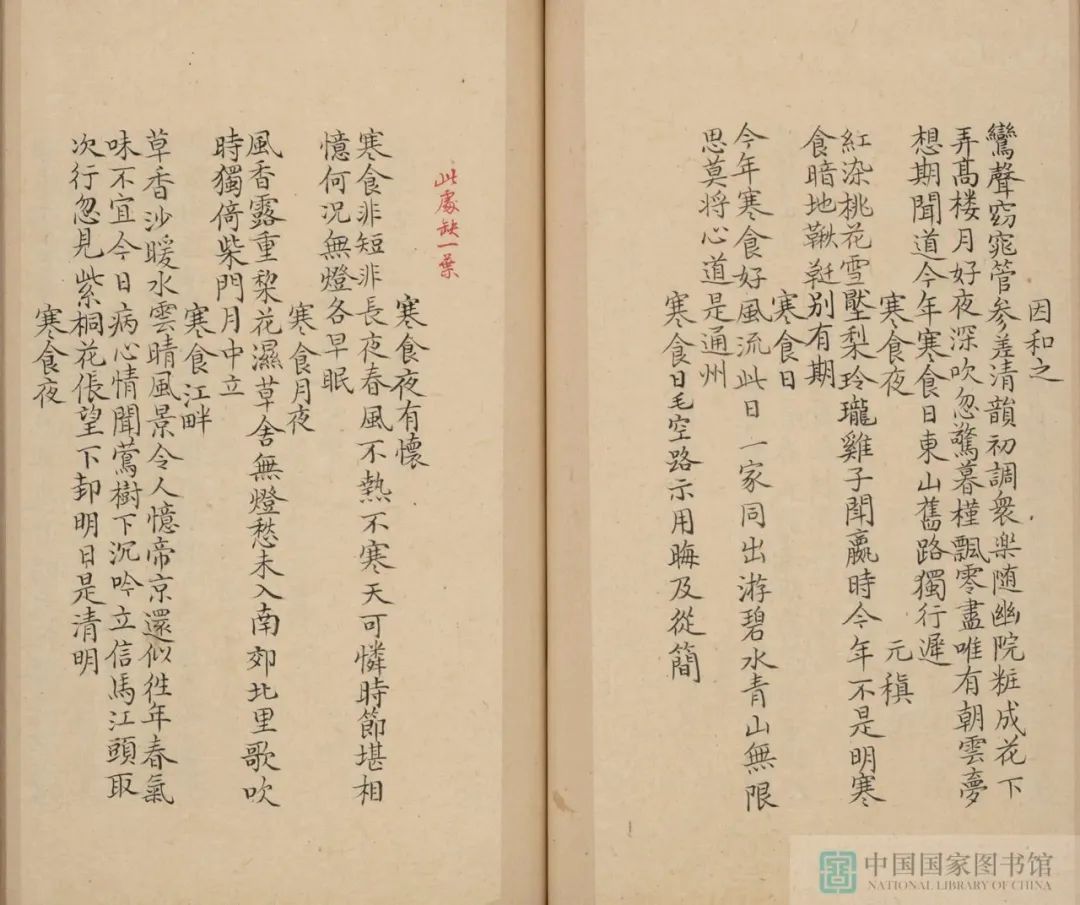 因和之
鸞聲窈窕管參差清韻初調衆樂随幽院粧成花下
弄髙楼月好夜深吹忽驚暮槿飄零盡唯有朝雲夢
想期聞道今年寒食日東山舊路獨行遲
寒食夜 元稹
紅染桃花雪壓梨玲瓏雞子鬬嬴時今年不是明寒
食暗地鞦韆别有期
寒食日
今年寒食好風流此日一家同出游碧水青山無限
思莫将心道是通州
寒食日毛空路示用晦及從簡
此處缺一葉
寒食夜有懷
寒食非短非長夜春風不熱不寒天可憐時節堪相
憶何況無燈各早眠
寒食月夜
風香露重梨花濕草舍無燈愁未入南郊北里歌吹
時獨倚柴門月中立
寒食江畔
草香沙暖水雲晴風景令人憶帝京還似往年春氣
味不宜今日病心情聞鶯樹下沉吟立信馬江頭取
次行忽見紫桐花悵望下邽明日是清明
寒食夜
中国国家图书馆
NATIONAL LIBRARY OF CHINA